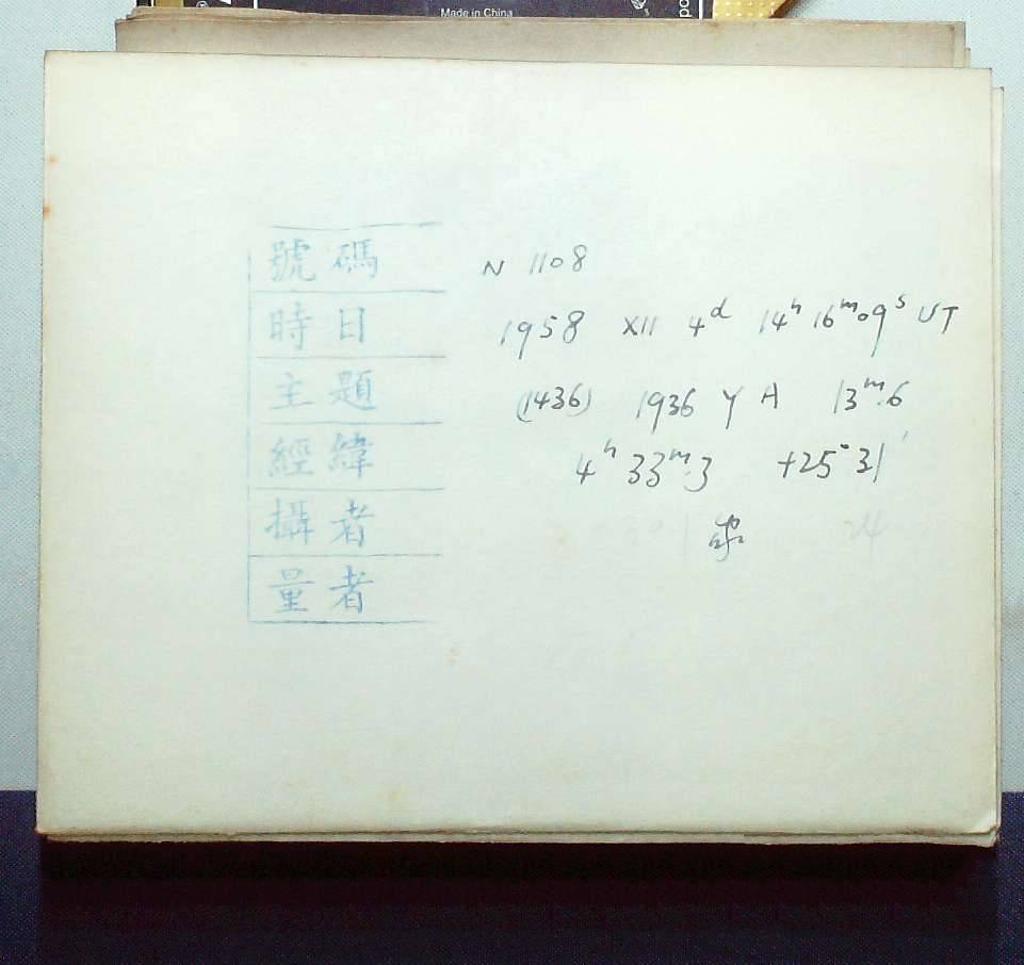 Made in China
號碼 N 1108
時日 1958 XII 4d 14h 16m 09s UT
主題 (1436) 1936 YA 13m.6
經緯 4h 33m.3 +25° 31'
攝者
量者